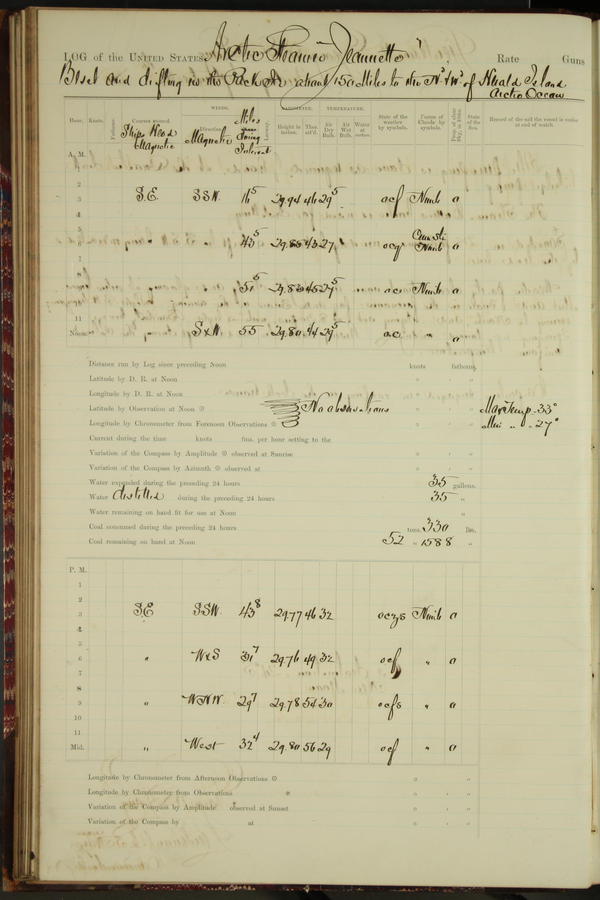 LOG of the UNITED STATES Arctic Steamer "Jeannette" Rate Guns
Beset and drifting in the Pack Ice about 150 Miles to the Nd & Wd of Herald Island
Arctic Ocean
Hour. Knots. Fathoms. Courses steered. Ships Head Magnetic WINDS. Direction. Magnetic Miles during Interval Leeway. Height in inches. Ther. att'd. TEMPERATURE. Air Dry Bulb. Air Wet Bulb. Water at surface. State of the weather by symbols. Forms of Clouds by symbols. State of the Sea. Record of the sail the vessel is under at end of watch.
A. M.
2
3 S.E. SSW. 16⁵ 29.94 46 29⁵ ocf Nimb 0
4
43⁵ 29.88 43 27⁵ Cum. St. Nimb 0
7
8
51⁵ 29.83 45 29⁵ oc Nimb 0
11
Noon. SxW 55 29.80 44 29⁵ oc " 0
Distance run by Log since preceding Noon knots fathoms,
Latitude by D. R. at Noon
Longitude by D. R. at Noon
Latitude by Observation at Noon No observations Max Temp. 33°
Longitude by Chronometer from Forenoon Observations Min " " 27°
Current during the time knots fms. per hour setting to the
Variation of the Compass by Amplitude observed at Sunrise
Variation of the Compass by Azimuth observed at
Water expended during the preceding 24 hours 35 gallons.
Water distilled during the preceding 24 hours 35 "
Water remaining on hand fit for use at Noon "
Coal consumed during the preceding 24 hours tons, 330 lbs.
Coal remaining on hand at Noon 52 " 1588 "
P. M.
1
2
3 SE SSW. 43⁸ 29.77 46 32 Nimb 0
4
5
6 " WxS 31⁷ 29.76 49 32 ocf " 0
7
8
9 " WNW. 29⁷ 29.78 54 30 ocfs " 0
10
11
Mid. " West 32⁴ 29.80 56 29 ocf " 0
Longitude by Chronometer from Afternoon Observations
Longitude by Chronometer from Observations
Variation of the Compass by Amplitude observed at Sunset
Variation of the Compass by at